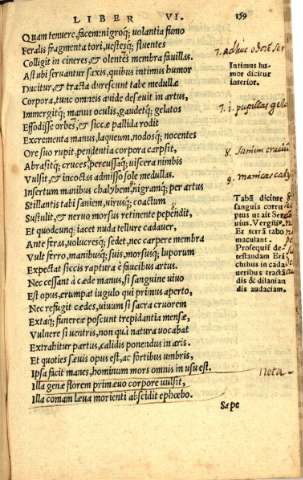 LIBER VI. 159
Quam tenuere, facem: nigroq; uolantia fumo
Feralis fragmenta tori, uestesq; fluentes
Colligit in cineres, & olentes membra fauillas.
Ast ubi seruantur saxis, quibus intimus humor
Ducitur, & tracta durescunt tabe medullæ
Corpora, tunc omneis auide desæuit in artus,
Immergitq; manus oculis, gaudetq; gelatos
Effodisse orbes, & siccæ pallida rodit
Excrementa manus, laqueum, nodosq; nocentes
Ore suo rupit. pendentia corpora carpsit,
Abrasitq; cruces, percussaq; uiscera nimbis
Vulsit, & incoctas admisso sole medullas.
Insertum manibus chalybem, nigramq; per artus
Stillantis tabi saniem, uirusq; coactum
Sustulit, & neruo morsus retinente pependit,
Et quodcunq; iacet nuda tellure cadauer,
Ante feras, uolucresq; sedet, nec carpere membra
Vult ferro, manibusq; suis, morsusq; luporum
Expectat siccis raptura è faucibus artus.
Nec cessant à cæde manus, si sanguine uiuo
Est opus, erumpat iugulo qui primus aperto,
Nec refugit cædes, uiuum si sacra cruorem
Extaq; funereæ poscunt trepidantia mensæ,
Vulnere si uentris, non qua natura uocabat
Extrahitur partus, calidis ponendus in aris.
Et quoties sæuis opus est, ac fortibus umbris,
Ipsa facit manes, hominum mors omnis in usu est.
Illa genæ florem primæuo corpore uulsit,
Illa comam læua morienti abscidit ephœbo.
Sæpe
Intimus hu-
mor dicitur
interior.
7. i. pupillas gela
Tabū dicitur
sanguis corru
ptus
Et terrā tabo
maculant.
Prosequit̃ de-
testandam Eri
chthus in cada-
ueribus tractā
dis & dilanian
dis audaciam.
nota